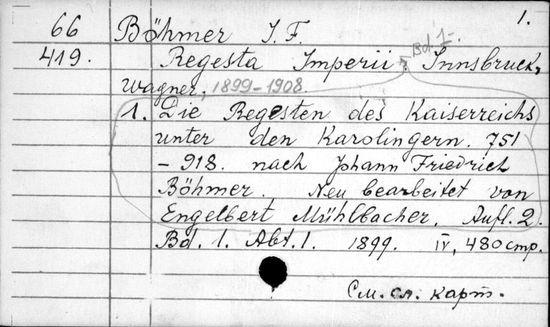 1.
66 Böhmer J. F.
419. Regesta Imperii Bd. 1- Innsbruck,
Wagner, 1899-1908.
1. Die Regesten des Kaiserreichs
unter den Karolingern. 751
- 918. nach Johann Friedrich
Böhmer. Neu bearbeitet von
Engelbert Mühlbacher. Aufl. 2.
Bd. 1. Abt. 1. 1899. IV, 480 стр.
См. сл. карт.